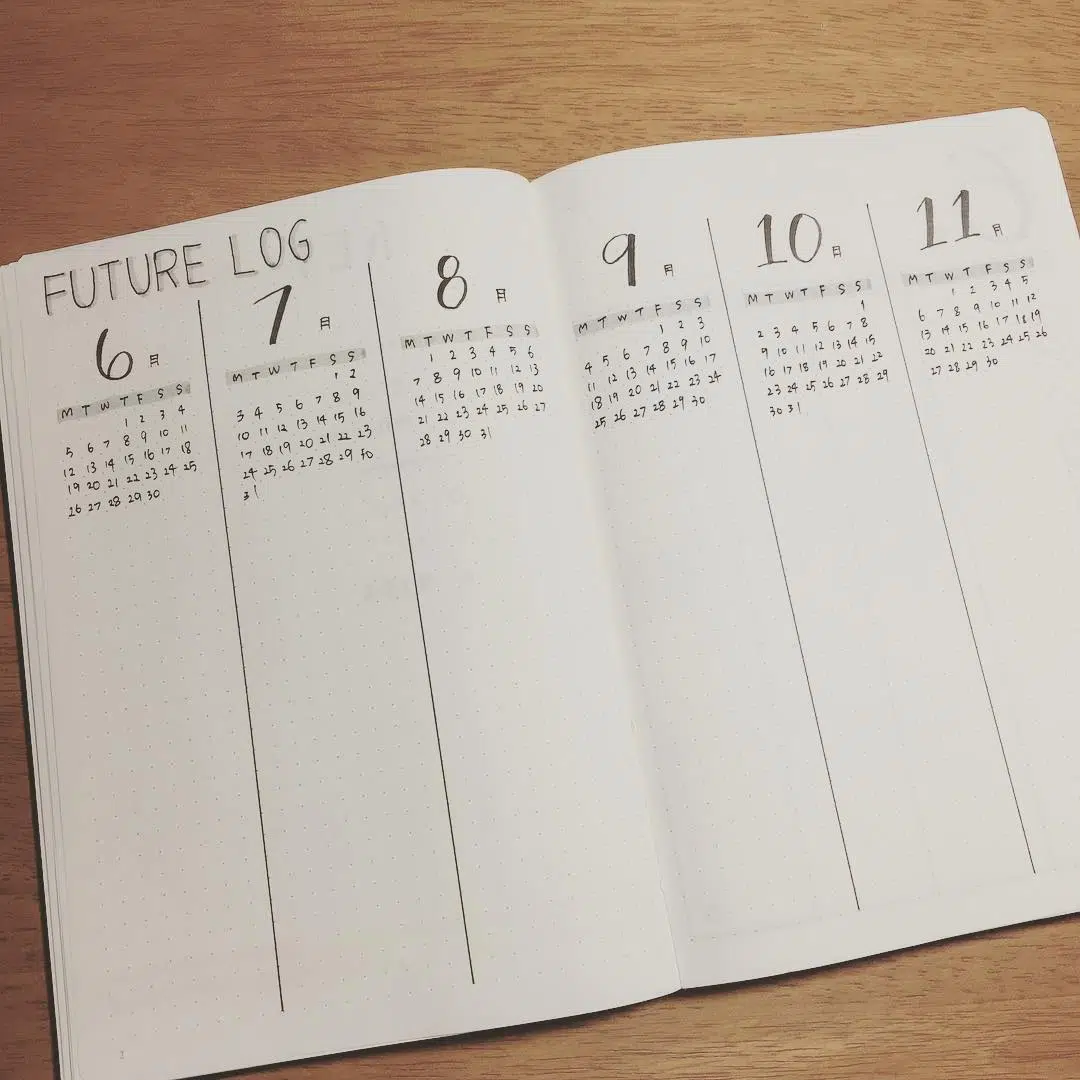 FUTURE LOG
6月
M T W T F S S
1 2 3 4
5 6 7 8 9 10 11
12 13 14 15 16 17 18
19 20 21 22 23 24 25
26 27 28 29 30
7月
M T W T F S S
1 2
3 4 5 6 7 8 9
10 11 12 13 14 15 16
17 18 19 20 21 22 23
24 25 26 27 28 29 30
31
8月
M T W T F S S
1 2 3 4 5 6
7 8 9 10 11 12 13
14 15 16 17 18 19 20
21 22 23 24 25 26 27
28 29 30 31
9月
M T W T F S S
1 2 3
4 5 6 7 8 9 10
11 12 13 14 15 16 17
18 19 20 21 22 23 24
25 26 27 28 29 30
10月
M T W T F S S
1
2 3 4 5 6 7 8
9 10 11 12 13 14 15
16 17 18 19 20 21 22
23 24 25 26 27 28 29
30 31
11月
M T W T F S S
1 2 3 4 5
6 7 8 9 10 11 12
13 14 15 16 17 18 19
20 21 22 23 24 25 26
27 28 29 30